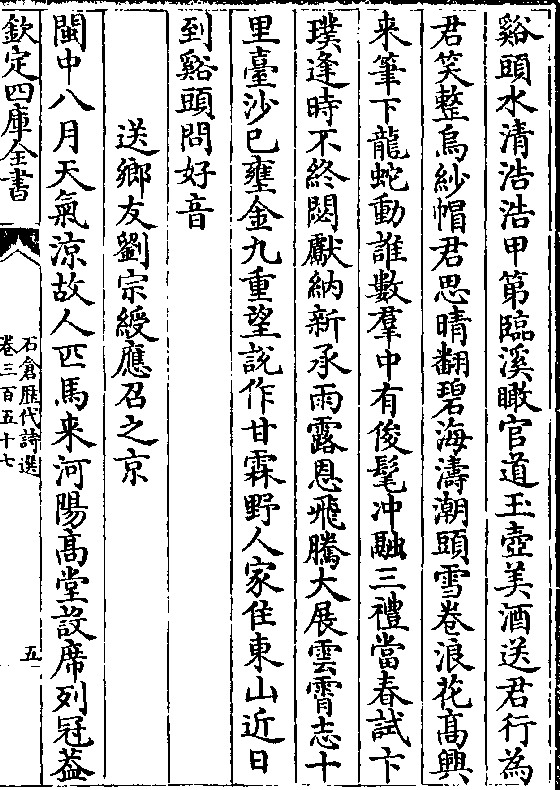 谿頭水清浩浩甲第臨溪瞰官道玉壺美酒送君行為
君笑整烏紗帽君思晴翻碧海濤潮頭雪卷浪花髙興
来筆下龍蛇動誰數羣中有俊髦沖融三禮當春試卞
璞逢時不終閟獻納新承雨露恩飛騰大展雲霄志十
里臺沙已壅金九重望説作甘霖野人家住東山近日
到谿頭問好音
送鄉友劉宗綬應召之京
閩中八月天氣涼故人匹馬来河陽髙堂設席列冠葢
欽定四庫全書
石倉歴代詩選
卷三百五十七
五